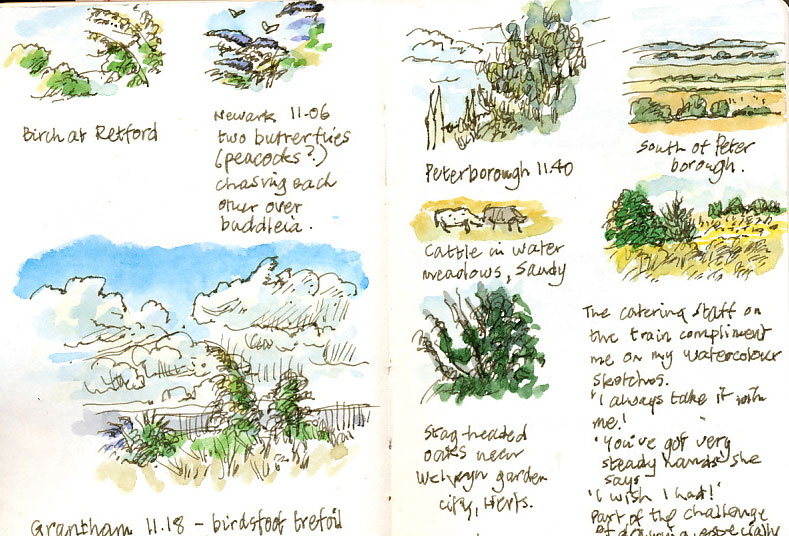 Birch at Retford
Newark 11.06
two butterflies
(peacocks?)
chasing each
other over
buddleia.
Grantham 11.18 - birdsfoot trefoil
Peterborough 11.40
Cattle in water
meadows, Sandy
Stag headed
oaks near
Welwyn garden
city, Herts.
South of Peter
borough.
The catering staff on
the train compliment
me on my watercolour
sketches.
'I always take it with
me!'
'You've got very
steady hands' she
says
'I wish I had!'
Part of the challenge
of drawing, especially